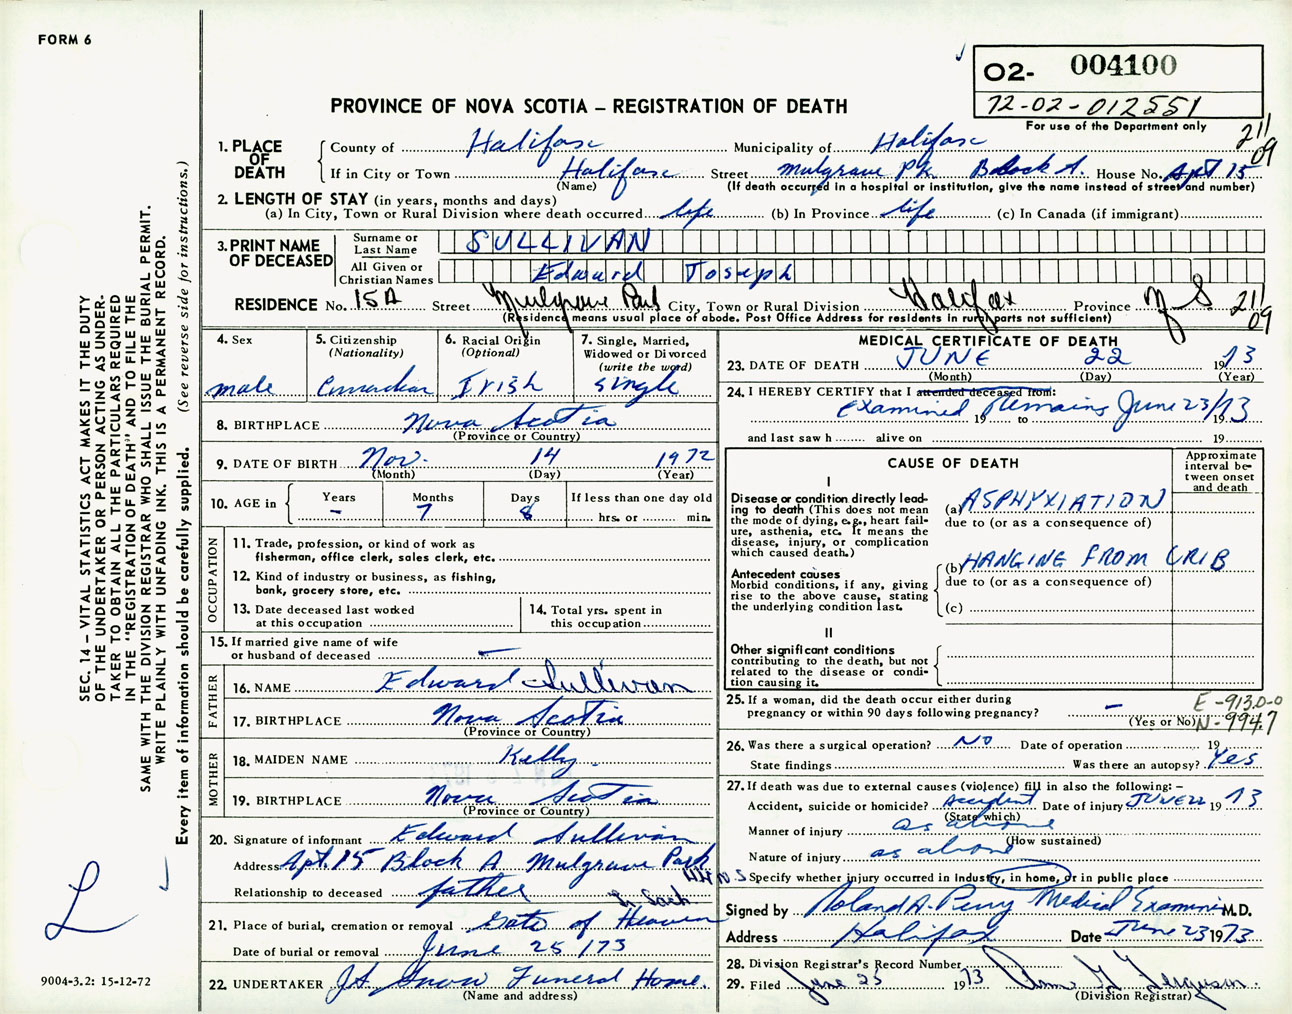 FORM 6
O2- 004100
72-02-012551
For use of the Department only
PROVINCE OF NOVA SCOTIA – REGISTRATION OF DEATH
211
09
1. PLACE OF DEATH
County of Halifax Municipality of Halifax
If in City or Town Halifax Street Mulgrave Pk. Block A. House No. Apt 15
(Name) (If death occurred in a hospital or institution, give the name instead of street and number)
2. LENGTH OF STAY (in years, months and days)
(a) In City, Town or Rural Division where death occurred life (b) In Province life (c) In Canada (if immigrant)
3. PRINT NAME OF DECEASED
Surname or Last Name SULLIVAN
All Given or Christian Names Edward Joseph
RESIDENCE No. 15A Street Mulgrave Park City, Town or Rural Division Halifax Province N S 211
09
(Residence means usual place of abode. Post Office Address for residents in rural parts not sufficient)
4. Sex
male
5. Citizenship
(Nationality)
Canadian
6. Racial Origin
(Optional)
Irish
7. Single, Married,
Widowed or Divorced
(write the word)
single
8. BIRTHPLACE Nova Scotia
(Province or Country)
9. DATE OF BIRTH Nov. 14 1972
(Month) (Day) (Year)
10. AGE in
Years Months Days If less than one day old
– 7 8 hrs. or min.
OCCUPATION
11. Trade, profession, or kind of work as
fisherman, office clerk, sales clerk, etc.
12. Kind of industry or business, as fishing,
bank, grocery store, etc.
13. Date deceased last worked
at this occupation
14. Total yrs. spent in
this occupation
15. If married give name of wife
or husband of deceased –
FATHER
16. NAME Edward Sullivan
17. BIRTHPLACE Nova Scotia
(Province or Country)
MOTHER
18. MAIDEN NAME Kelly.
19. BIRTHPLACE Nova Scotia
(Province or Country)
20. Signature of informant Edward Sullivan
Address Apt. 15 Block A Mulgrave Park
N.S
Relationship to deceased father
Sack
21. Place of burial, cremation or removal Gate of Heaven
Date of burial or removal June 25/73
22. UNDERTAKER J A Snow Funeral Home.
(Name and address)
MEDICAL CERTIFICATE OF DEATH
23. DATE OF DEATH JUNE 22 1973
(Month) (Day) (Year)
24. I HEREBY CERTIFY that I attended deceased from:
Examined Remains June 23/73
19 to 19
and last saw h alive on 19
CAUSE OF DEATH
Approximate
interval be-
tween onset
and death
I
Disease or condition directly lead-
ing to death (This does not mean
the mode of dying, e.g., heart fail-
ure, asthenia, etc. It means the
disease, injury, or complication
which caused death.)
(a) ASPHYXIATION
due to (or as a consequence of)
Antecedent causes
Morbid conditions, if any, giving
rise to the above cause, stating
the underlying condition last.
(b) HANGING FROM CRIB
due to (or as a consequence of)
(c)
II
Other significant conditions
contributing to the death, but not
related to the disease or condi-
tion causing it.
25. If a woman, did the death occur either during
pregnancy or within 90 days following pregnancy? –
(Yes or No)
E-913.0-0
N-994.7
26. Was there a surgical operation? NO Date of operation 19
State findings Was there an autopsy? Yes
27. If death was due to external causes (violence) fill in also the following: –
Accident, suicide or homicide? accident Date of injury JUNE 22 1973
(State which)
Manner of injury as above
(How sustained)
Nature of injury as above
Specify whether injury occurred in Industry, in home, or in public place
Signed by Roland A. Perry Medical Examiner M.D.
Address Halifax Date June 23 1973
28. Division Registrar's Record Number
29. Filed June 25 1973 Ferguson.
(Division Registrar)
SEC. 14 – VITAL STATISTICS ACT MAKES IT THE DUTY
OF THE UNDERTAKER OR PERSON ACTING AS UNDER-
TAKER TO OBTAIN ALL THE PARTICULARS REQUIRED
IN THE "REGISTRATION OF DEATH" AND TO FILE THE
SAME WITH THE DIVISION REGISTRAR WHO SHALL ISSUE THE BURIAL PERMIT.
WRITE PLAINLY WITH UNFADING INK. THIS IS A PERMANENT RECORD.
Every item of information should be carefully supplied. (See reverse side for instructions.)
L
9004-3.2: 15-12-72